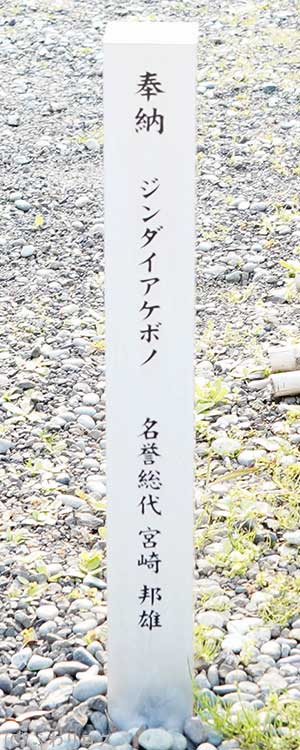 奉納 ジンダイアケボノ 名誉総代 宮崎 邦雄